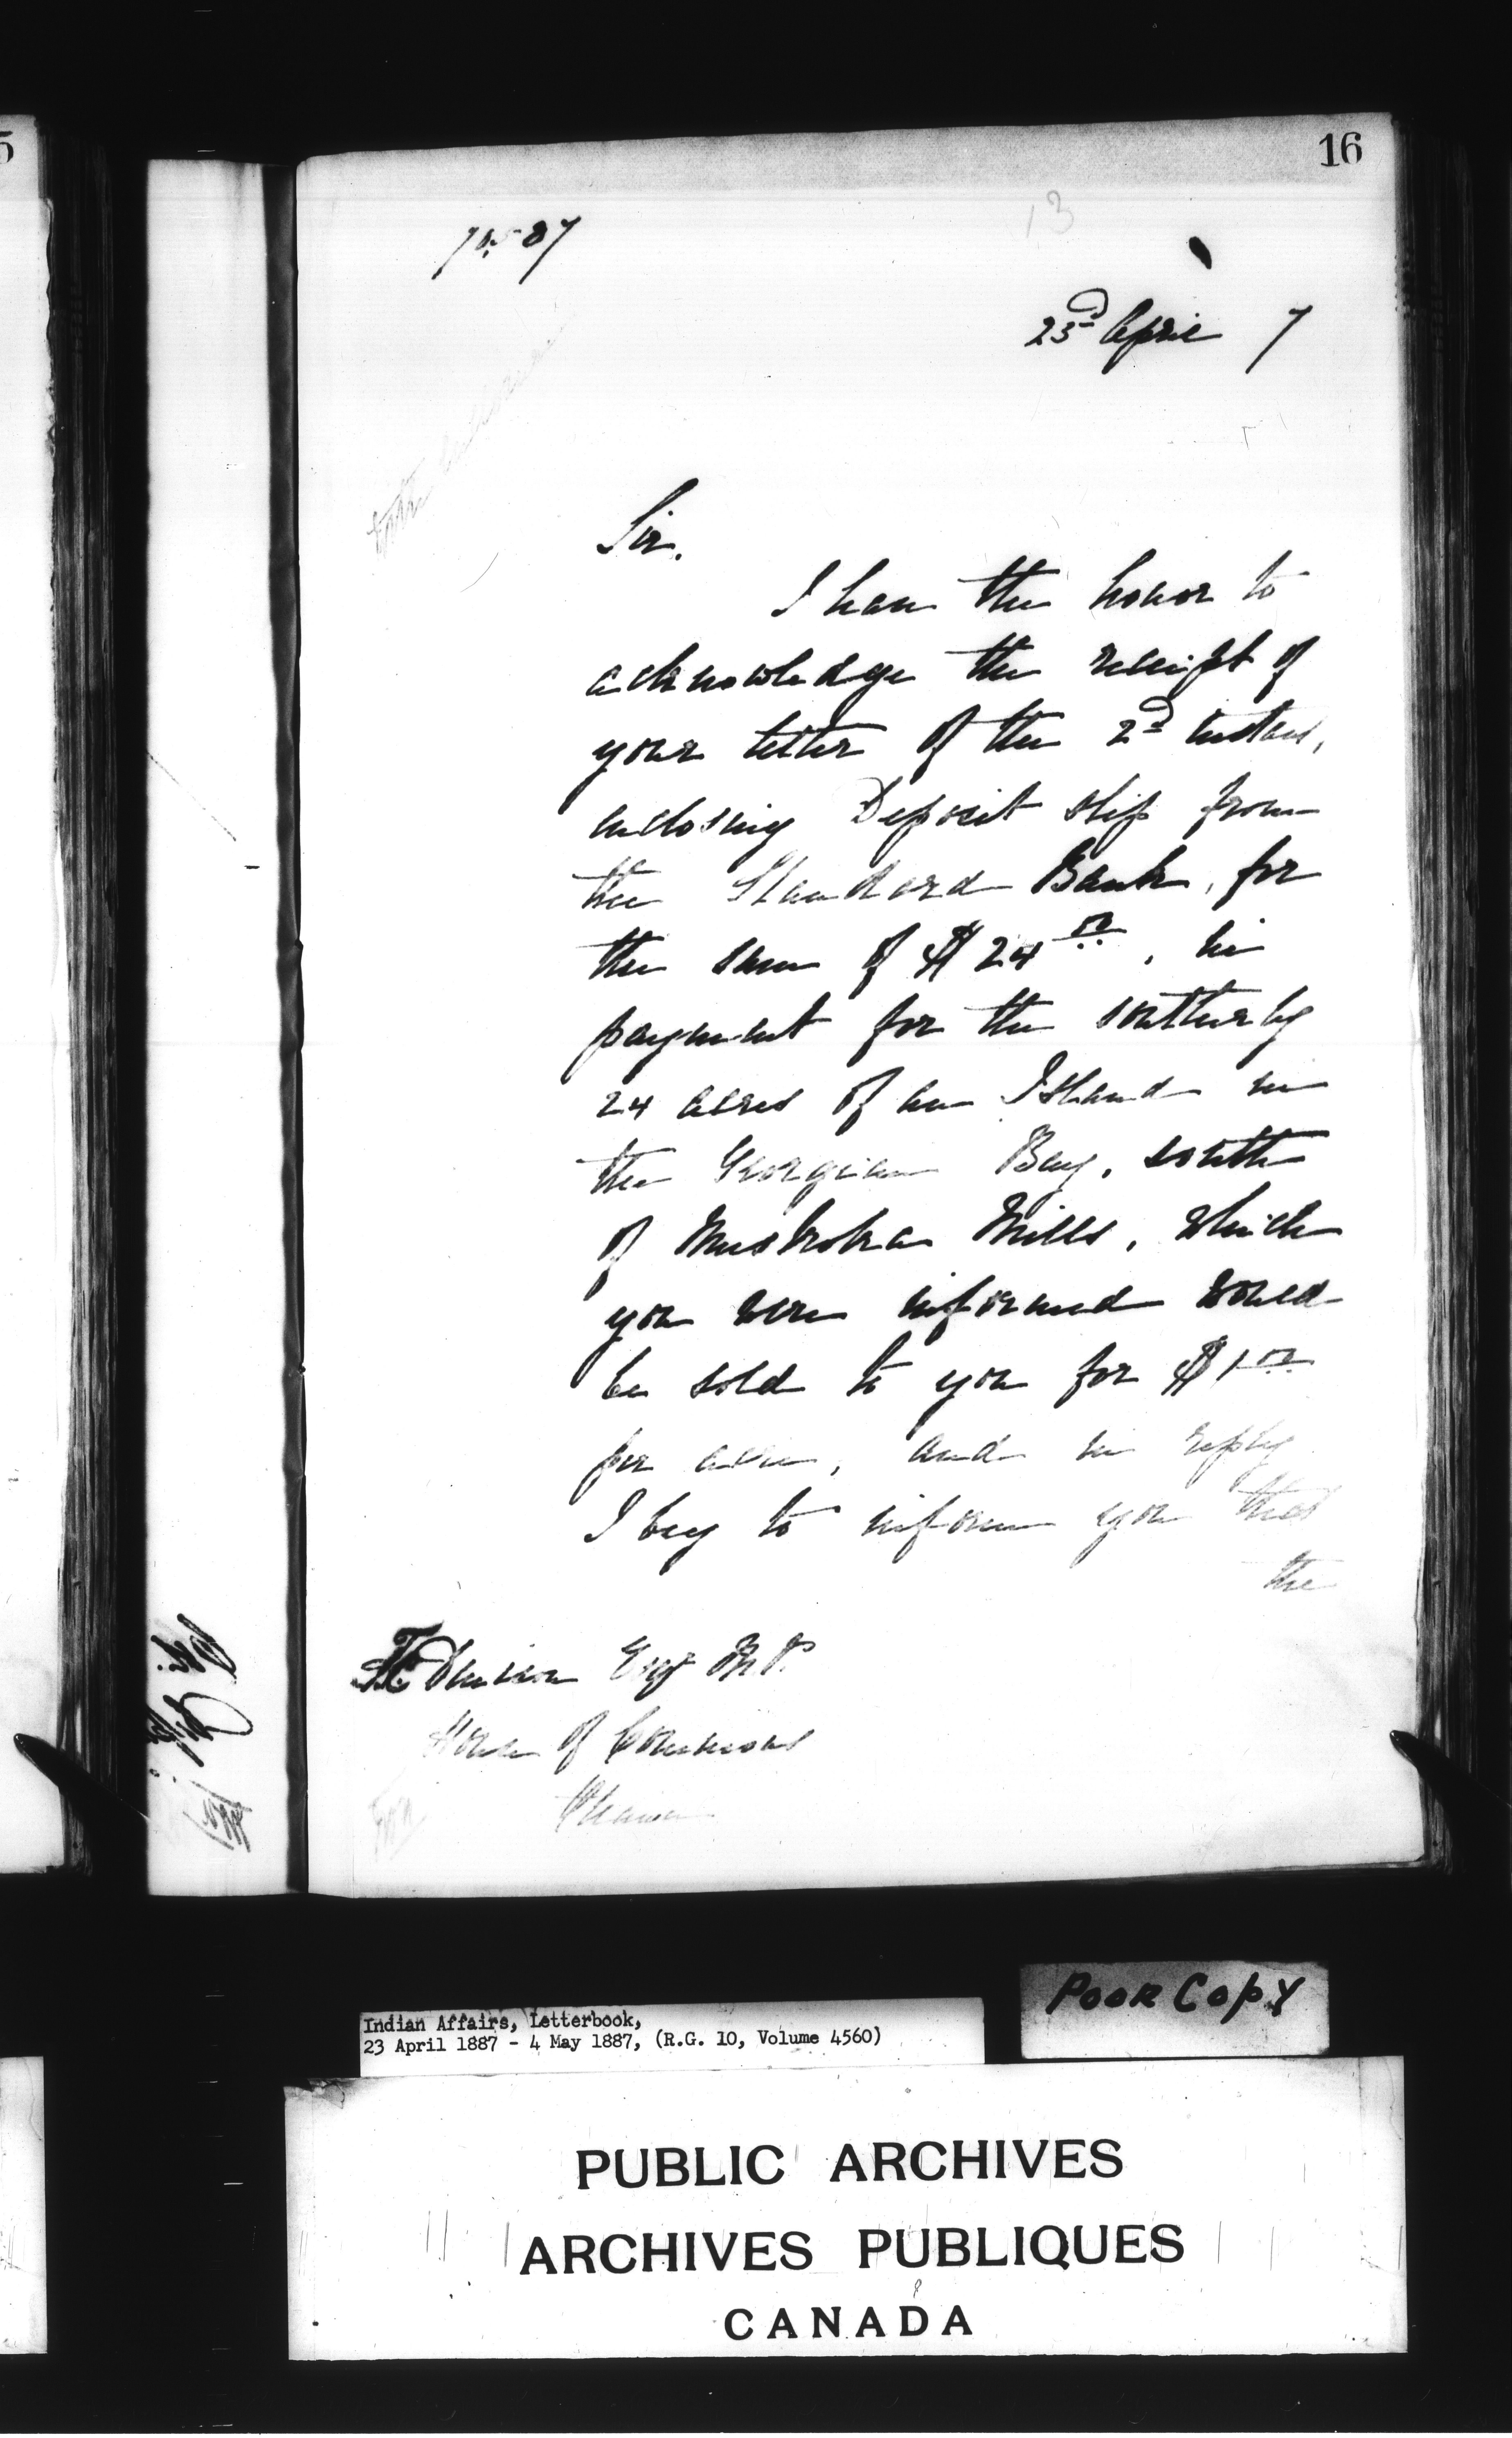 16
13
23d April 7
Sir,
I have the honor to
acknowledge the receipt of
your letter of the 2d instant,
inclosing Deposit slip from
the Standard Bank, for
the sum of $24.00, in
payment for the southerly
24 acres of an Island in
the Georgian Bay, south
of Muskoka Mills, which
you were informed would
be sold to you for $1.00
per acre, and in reply
I beg to inform you that
the
Denison Esq M.P.
House of Commons
Ottawa
Poor Copy
Indian Affairs, Letterbook,
23 April 1887 - 4 May 1887, (R.G. 10, Volume 4560)
PUBLIC ARCHIVES
ARCHIVES PUBLIQUES
CANADA